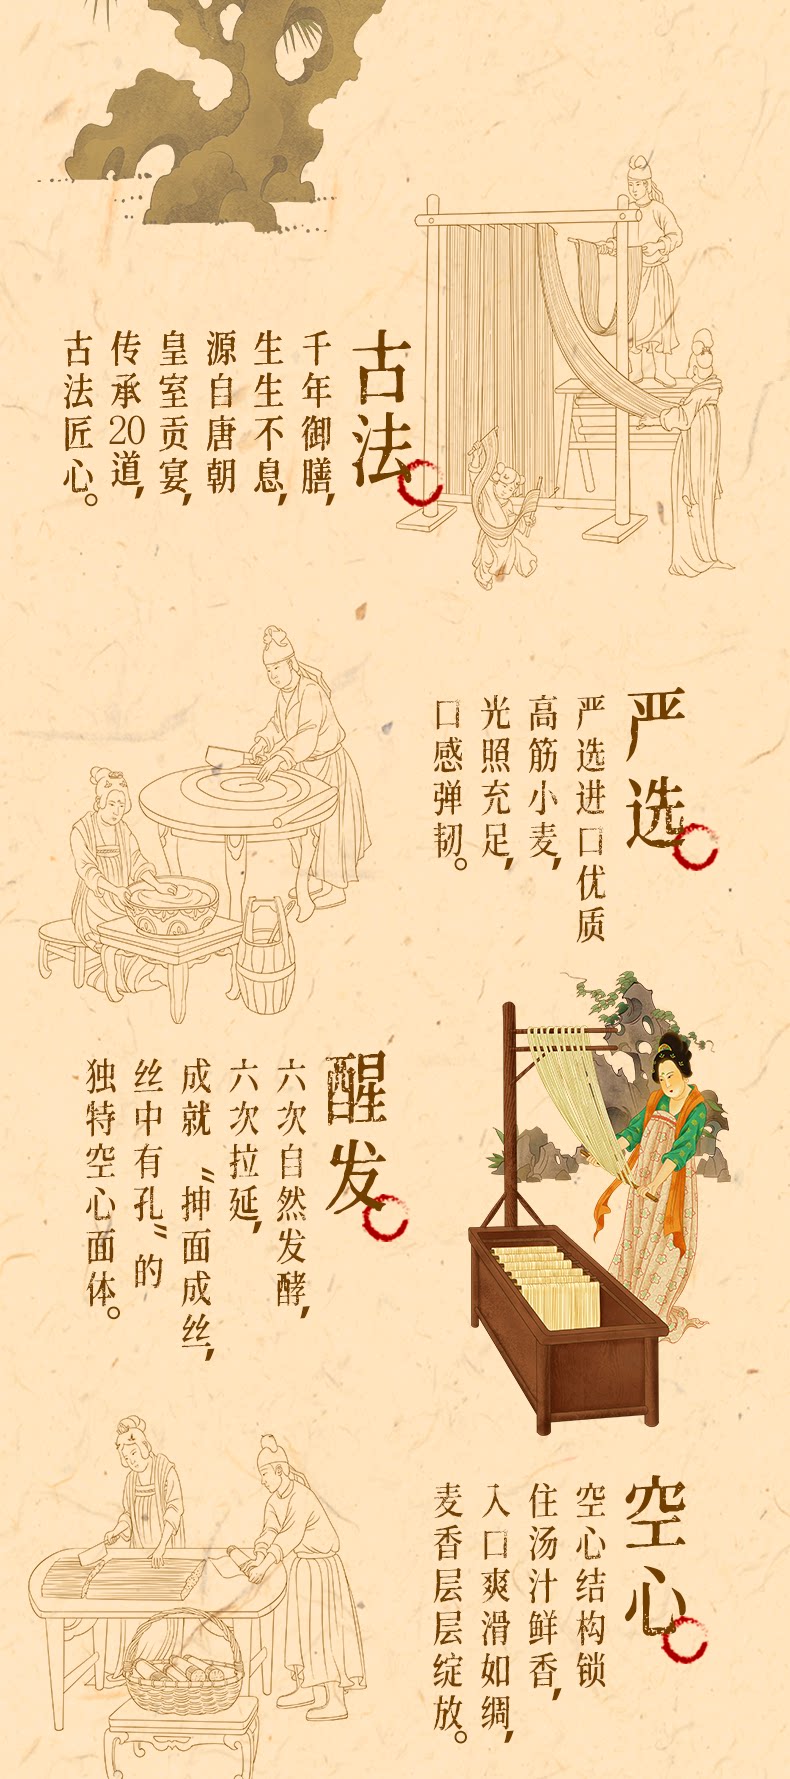 古法
千年御膳，
生生不息，
源自唐朝
皇室贡宴，
传承20道，
古法匠心。
严选
严选进口优质
高筋小麦，
光照充足，
口感弹韧。
醒发
六次自然发酵，
六次拉延，
成就“抻面成丝，
丝中有孔”的
独特空心面体。
空心
空心结构锁
住汤汁鲜香，
入口爽滑如绸，
麦香层层绽放。